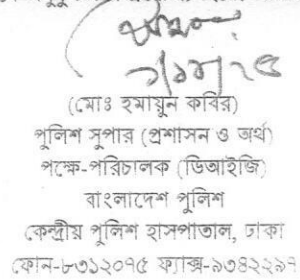 (মোঃ হুমায়ুন কবির)
পুলিশ সুপার (প্রশাসন ও অর্থ)
পক্ষে-পরিচালক (ডিআইজি)
বাংলাদেশ পুলিশ
কেন্দ্রীয় পুলিশ হাসপাতাল, ঢাকা
ফোন-৮৩১২০৭৫ ফ্যাক্স-৯৩৪২২৯৭